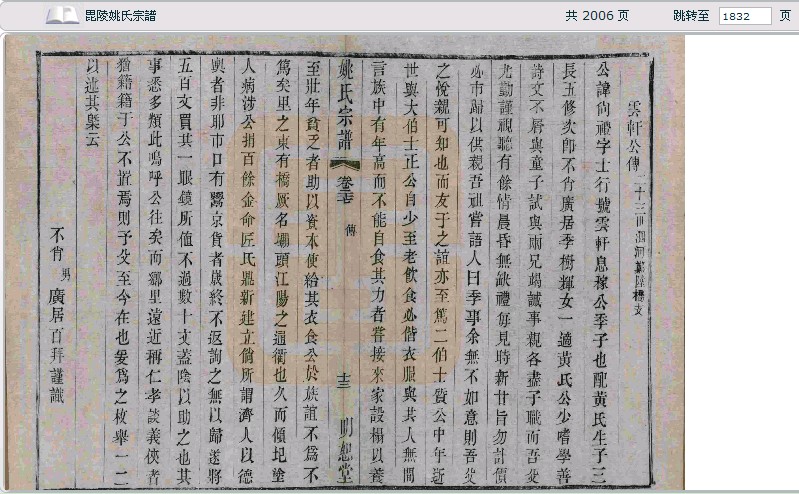 毘陵姚氏宗譜
共 2006 页
跳转至 1832 页
雲軒公傳 二十三世
公諱尙禮字士行號雲軒息稼公季子也配黃氏生子三
長五修次卽不肖廣居季樹輝女一適黃氏公少嗜學善
詩文不屑與童子試與兩兄竭誠事親各盡子職而吾父
尤勤謹視聽有餘情晨昏無缺禮每見時新甘旨勿計價
必市歸以供親吾祖嘗語人曰季事余無不如意則吾父
之悅親可知也而友于之誼亦至篤二伯士賢公中年逝
世與大伯士正公自少至老飮食必偕衣服與共人無間
言族中有年高而不能自食其力者嘗接來家設榻以養
姚氏宗譜 卷三 傳 十三 明恕堂
至壯年貧乏者助以資本使給其衣食公於族誼不爲不
篤矣里之東有橋厥名壩頭江陽之通衢也久而傾圮塗
人病涉公捐百餘金命匠氏鼎新建立倘所謂濟人以德
輿者非耶市口有鬻京貨者歲終不返詢之無以歸遂將
五百文買其一眼鏡所值不過數十文蓋陰以助之也其
事悉多類此嗚呼公往矣而鄉里遠近稱仁孝談義俠者
猶籍籍于公不置焉則予父至今在也爰爲之枚舉一二
以述其槩云
不肖男廣居百拜謹識